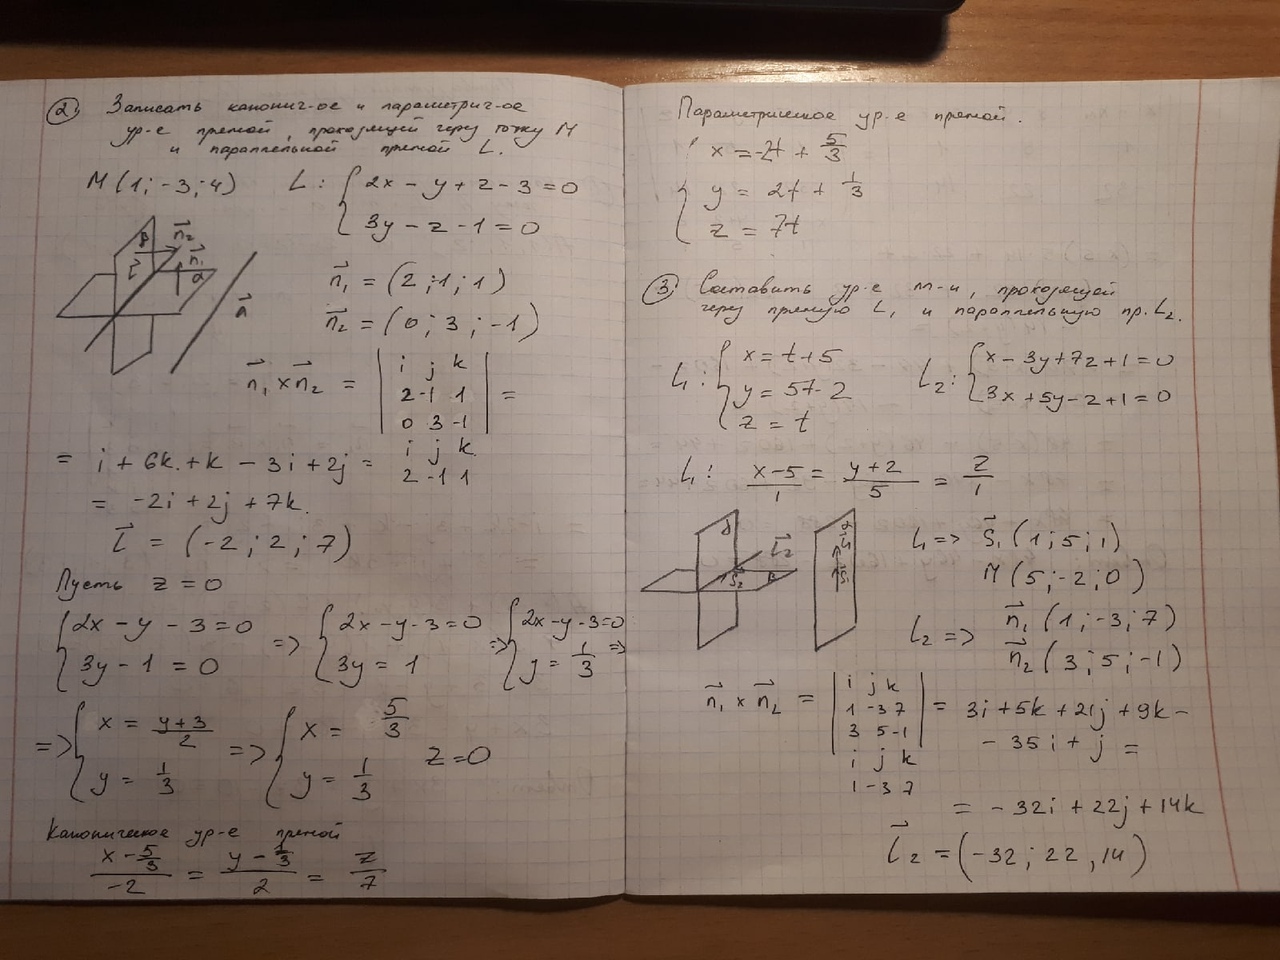 2. Записать канонич-ое и параметрич-ое
ур-е прямой, проходящей через точку M
и параллельной прямой L.
M(1; -3; 4) L: { 2x - y + z - 3 = 0
3y - z - 1 = 0
β n₂ n₁ α l a
n₁ = (2; -1; 1)
n₂ = (0; 3; -1)
n₁ × n₂ = | i j k
2 -1 1
0 3 -1 | =
i j k
2 -1 1
= i + 6k + k - 3i + 2j =
= -2i + 2j + 7k.
l = (-2; 2; 7)
Пусть z = 0
{ 2x - y - 3 = 0 => { 2x - y - 3 = 0 => { 2x - y - 3 = 0 =>
3y - 1 = 0 3y = 1 y = 1/3
=> { x = (y+3)/2 => { x = 5/3
y = 1/3 y = 1/3 z = 0
Каноническое ур-е прямой
(x - 5/3)/-2 = (y - 1/3)/2 = z/7
Параметрическое ур-е прямой.
{ x = -2t + 5/3
y = 2t + 1/3
z = 7t
3. Составить ур-е пл-и, проходящей
через прямую L₁ и параллельную пр. L₂.
L₁: { x = t + 5
y = 5t - 2
z = t
L₂: { x - 3y + 7z + 1 = 0
3x + 5y - z + 1 = 0
L₁: (x-5)/1 = (y+2)/5 = z/1
L₁ => S₁ (1; 5; 1)
M (5; -2; 0)
L₂ => n₁ (1; -3; 7)
n₂ (3; 5; -1)
n₁ × n₂ = | i j k
1 -3 7
3 5 -1 | = 3i + 5k + 21j + 9k -
- 35i + j =
i j k
1 -3 7
= -32i + 22j + 14k
l₂ = (-32; 22, 14)